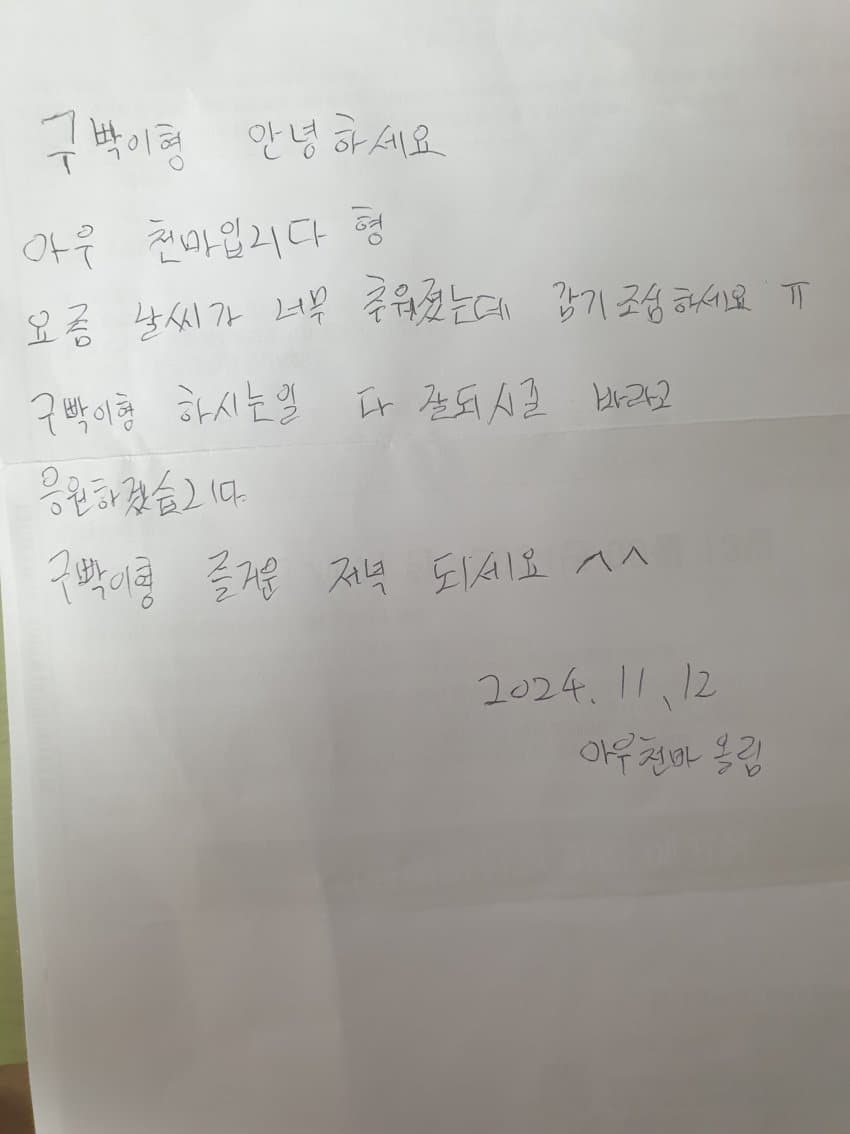 구빡이형 안녕하세요
아우 천마입니다 형
요즘 날씨가 너무 추워졌는데 감기조심하세요 ㅠ
구빡이형 하시는일 다 잘되시길 바라고
응원하겠습니다.
구빡이형 즐거운 저녁 되세요 ^^
2024. 11. 12
아우천마 올림